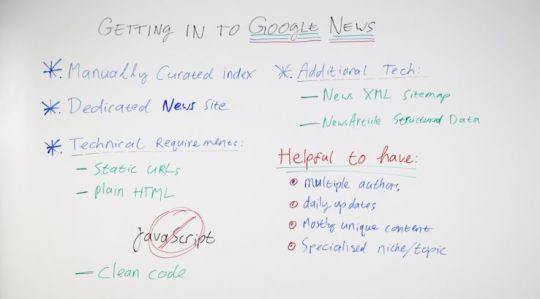 Getting in to Google News
* Manually Curated Index
* Dedicated News Site
* Technical Requirements:
— Static URLs
— plain HTML
JavaScript
— Clean code
* Additional Tech:
— News XML Sitemap
— NewsArticle Structured Data
Helpful to have:
multiple authors
daily updates
Mostly unique content
Specialised niche/topic